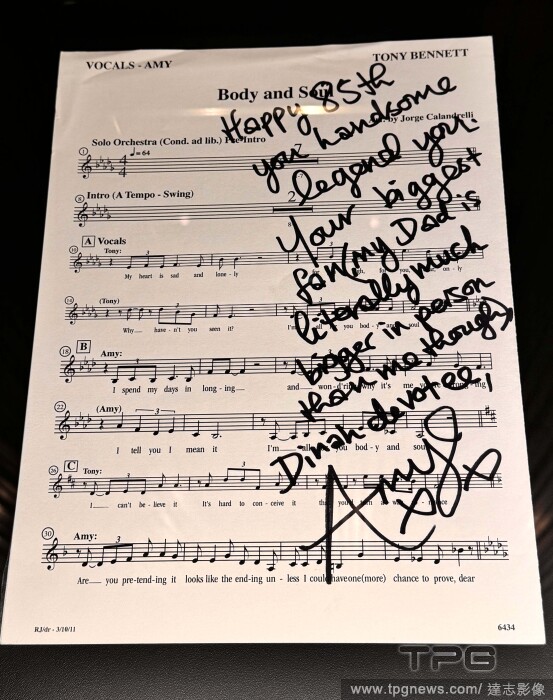 VOCALS - AMY
TONY BENNETT
Body and Soul
by Jorge Calandrelli
Happy 85th
you handsome
legend you.
Your biggest
fan (my Dad is
literally much
bigger in person
than me though)
Dinah devotee,
Amy
xx
Solo Orchestra (Cond. ad lib.) Pre-Intro
1
♩=64
4
4
7
8
Intro (A Tempo - Swing)
2
8
10
A Vocals
Tony:
3
My heart is sad and lone-ly
you, on-ly
14
(Tony)
3
Why___ have-n't you seen it?
I'm all you bod-y and soul
18
B
Amy:
I spend my days in long-ing___
and___ won-d'ring why it's me
22
(Amy)
3
I tell you I mean it
I'm___ you bod-y and soul
26
C
Tony:
3
I___ can't be-lieve it
It's hard to con-ceive it
30
Amy:
3
Are___ you pre-tend-ing it looks like the end-ing un - less I could have one(more) chance to prove, dear
RJ/dr - 3/10/11
6434
TPG
www.tpgnews.com/ 達志影像